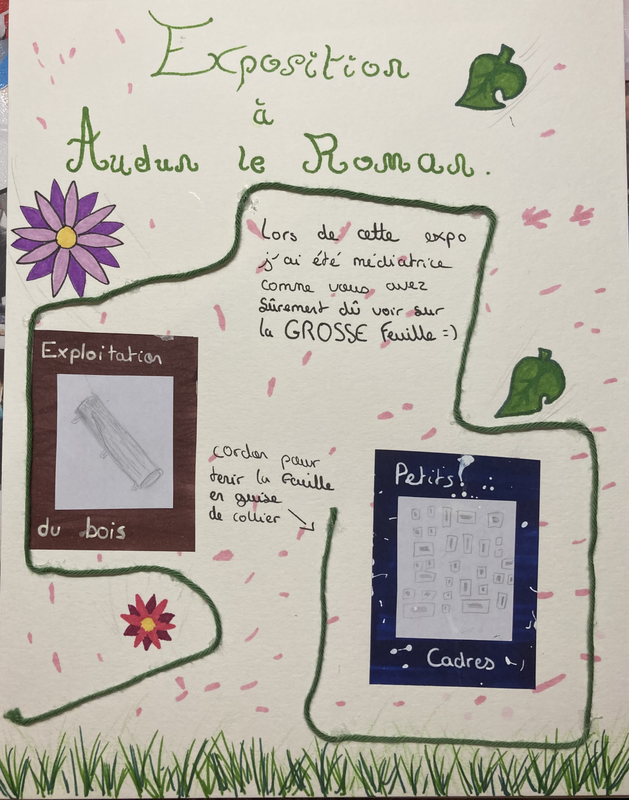 Exposition
à
Audun le Roman.
Lors de cette expo
j'ai été médiatrice
comme vous avez
sûrement dû voir sur
la GROSSE Feuille =)
Exploitation
du bois
cordon pour
tenir la feuille
en guise
de collier
Petits
Cadres